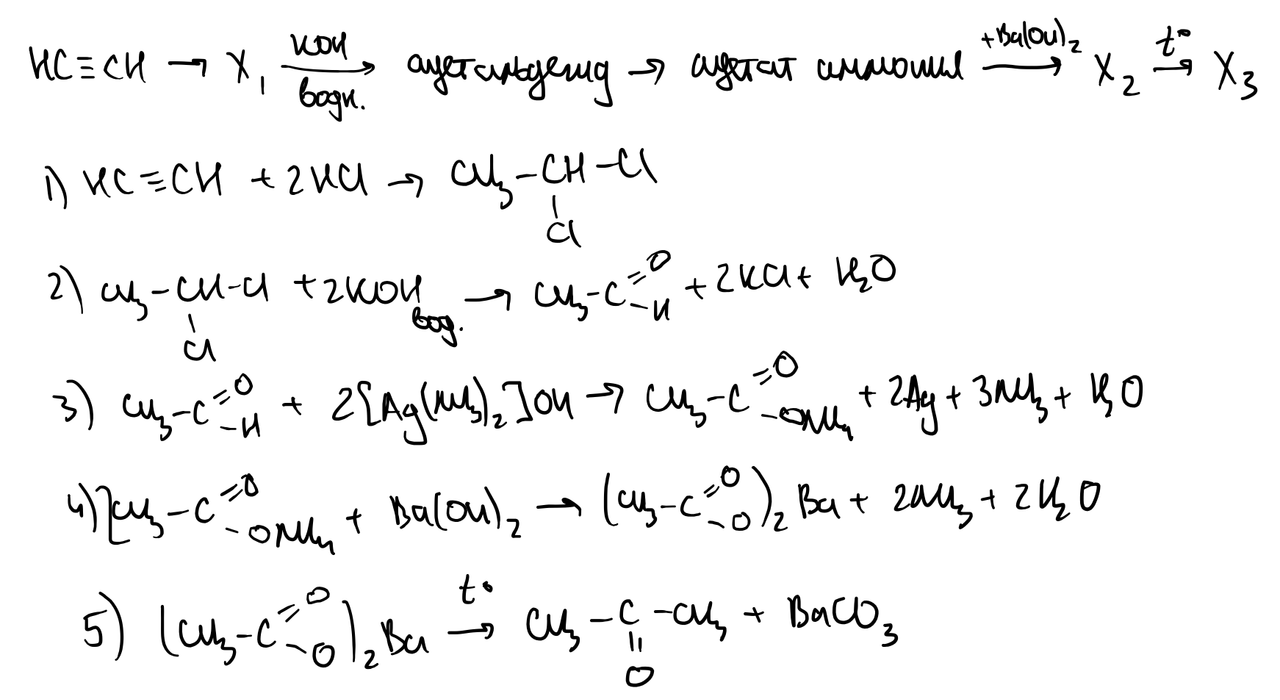 HC≡CH → X₁ —KOH водн.→ ацетальдегид → ацетат аммония —+Ba(OH)₂→ X₂ —t°→ X₃
1) HC≡CH + 2HCl → CH₃–CH–Cl
Cl
2) CH₃–CH–Cl + 2KOH вод. → CH₃–C=O–H + 2KCl + H₂O
Cl
3) CH₃–C=O–H + 2[Ag(NH₃)₂]OH → CH₃–C=O–ONH₄ + 2Ag + 3NH₃ + H₂O
4) 2CH₃–C=O–ONH₄ + Ba(OH)₂ → (CH₃–C=O–O)₂Ba + 2NH₃ + 2H₂O
5) (CH₃–C=O–O)₂Ba —t°→ CH₃–C–CH₃ + BaCO₃
O